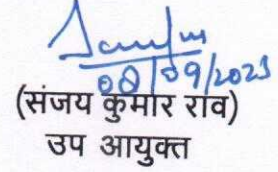 08/09/2023
(संजय कुमार राव)
उप आयुक्त